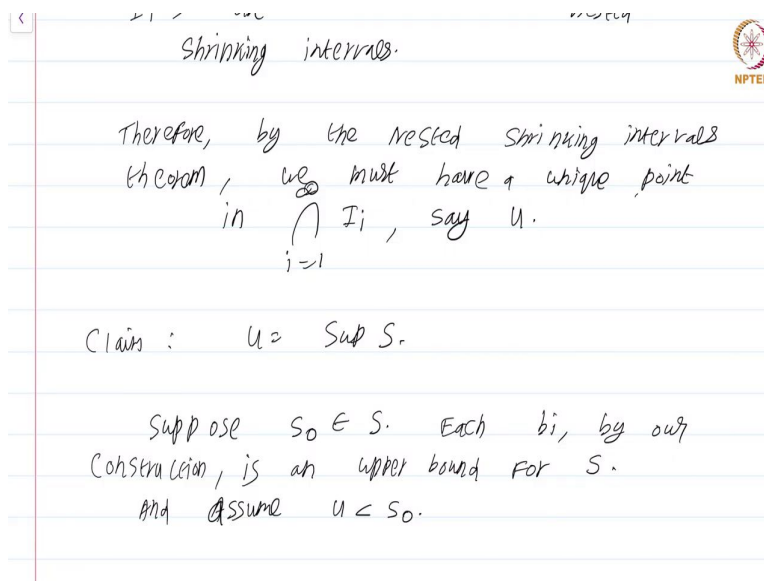 Shrinking intervals.
NPTE
Therefore, by the Nested Shrinking intervals
theorom, we must have a unique point
in ∞⋂i=1 Ii, say u.
Claim : u = Sup S.
Suppose S₀ ∈ S. Each bi, by our
Construction, is an upper bound For S.
And Assume u < S₀.